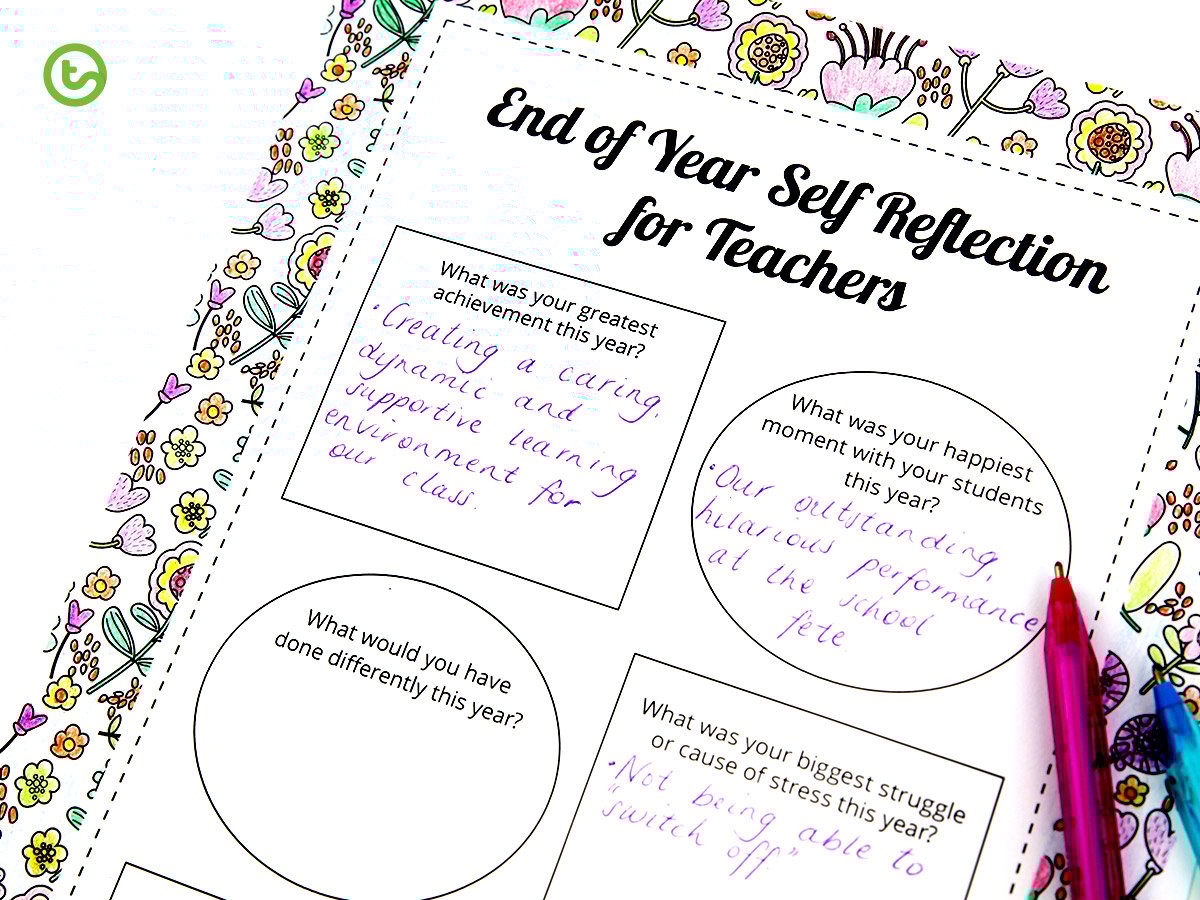 t
End of Year Self Reflection
for Teachers
What was your greatest
achievement this year?
• Creating a caring,
dynamic and
supportive learning
environment for
our class.
What was your happiest
moment with your students
this year?
• Our outstanding,
hilarious performance
at the school
fete
What would you have
done differently this year?
What was your biggest struggle
or cause of stress this year?
• Not being able to
"switch off"